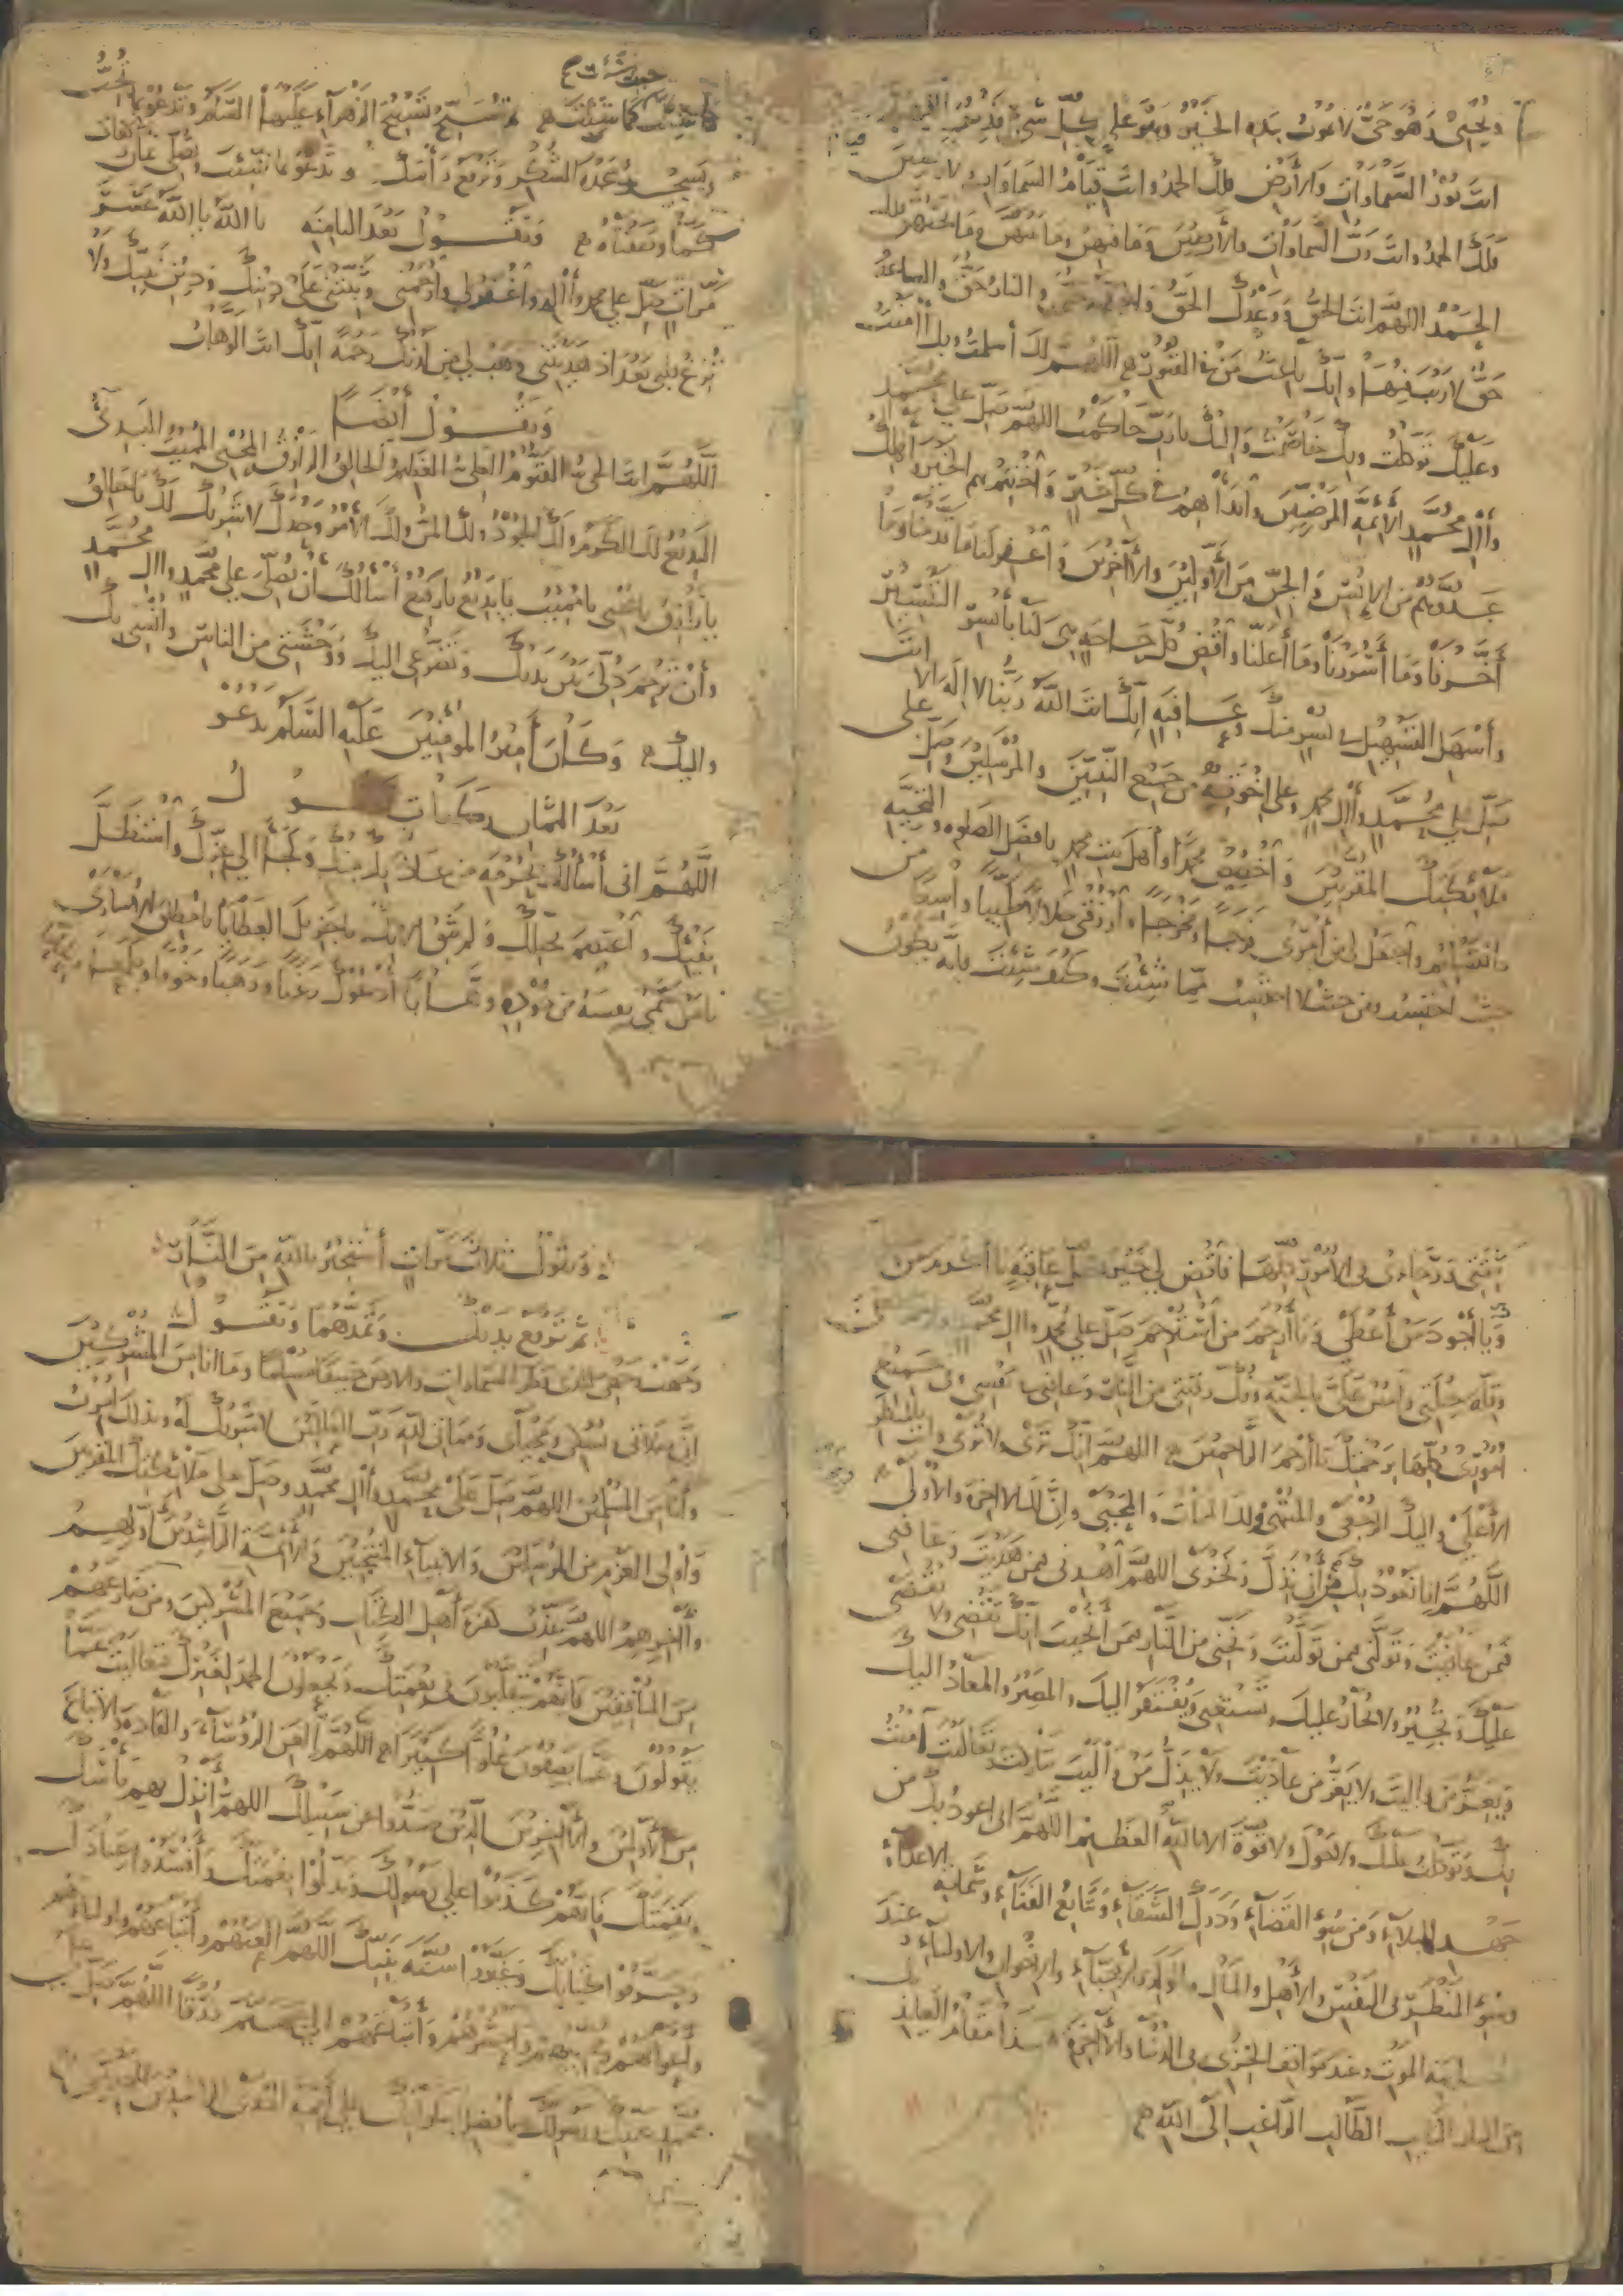 ويحيي وهو حي لا يموت بيده الخير وهو على كل شيء قدير
انت نور السماوات والأرض فلك الحمد وانت قيام السماوات والأرضين
فلك الحمد وانت رب السماوات والأرضين وما فيهن وما بينهن وما تحتهن فلك
الحمد اللهم انت الحق ووعدك الحق والجنة حق والنار حق والساعة
حق لا ريب فيها وانك باعث من في القبور اللهم لك أسلمت وبك آمنت
وعليك توكلت وبك خاصمت واليك يا رب حاكمت اللهم صل على محمد
وآل محمد الأئمة المرضيين وابدأ بهم في كل خير واختم بهم الخير واهلك
عدوهم من الإنس والجن من الأولين والآخرين واغفر لنا ما قدمنا وما
أخرنا وما أسررنا وما أعلنا واقض كل حاجة هي لنا بأيسر التيسير
وأسهل التسهيل في يسر منك وعافية إنك انت الله ربنا لا إله إلا انت
صل على محمد وآل محمد وعلى اخوته من جميع النبيين والمرسلين وصل على
ملائكتك المقربين واخصص محمدا وأهل بيت محمد بأفضل الصلوة والتحية
والتسليم واجعل لي من أمري فرجا ومخرجا وارزقني حلالا طيبا واسعا من
حيث احتسب ومن حيث لا احتسب مما شئت وكيف شئت فانه يكون
ما شئت كما شئت ثم تسبح تسبيح الزهراء عليها السلام وتدعو بما تحب
وتسجد سجدة الشكر
كما وصفناه وتقول بعد الثامنه يا الله يا الله عشر
مرات صل على محمد وآله واغفر لي وارحمني وثبتني على دينك ودين نبيك ولا
تزغ قلبي بعد اذ هديتني وهب لي من لدنك رحمة انك انت الوهاب
وتقول أيضا
اللهم انت الحي القيوم العلي العظيم الخالق الرازق المحيي المميت المبدئ
البديع لك الكرم ولك الجود ولك المن ولك الأمر وحدك لا شريك لك يا خالق
يا رازق يا محيي يا مميت يا بديع يا رفيع أسألك أن تصلي على محمد وآل محمد
وأن ترحم ذلي بين يديك وتضرعي اليك ووحشتي من الناس وانسي بك
واليك وكان أمير المؤمنين عليه السلم يدعو
بعد الثمان ركعات
اللهم اني أسألك بحرمة من عاذ بك منك ولجأ الى عزك واستظل
بفيئك واعتصم بحبلك ولم يثق الا بك يا جزيل العطايا يا مطلق الأسارى
يا من سمى نفسه من جوده وهابا أدعوك رغبا ورهبا وخوفا وطمعا
وبأجود من أعطى ويا أرحم من استرحم صل على محمد وآل محمد
وقلة حيلتي وامنن علي بالجنة وفك رقبتي من النار وعافني في نفسي وفي جميع
أموري كلها برحمتك يا أرحم الراحمين اللهم انك ترى ولا ترى وانت بالمنظر
الأعلى واليك الرجعى والمنتهى ولك الممات والمحيى وإن لك الآخرة والأولى
اللهم إنا نعوذ بك من أن نذل ونخزى اللهم اهدني فيمن هديت وعافني
فيمن عافيت وتولني فيمن توليت ونجني من النار فيمن أنجيت انك تقضي ولا يقضى
عليك وتجير ولا يجار عليك وتستغني ويفتقر اليك والمصير والمعاد اليك
ويعز من واليت ولا يعز من عاديت ولا يذل من واليت تباركت وتعاليت آمنت
بك وتوكلت عليك ولا حول ولا قوة الا بالله العظيم اللهم اني اعوذ بك من
جهد البلاء ومن سوء القضاء ودرك الشقاء وتتابع الفناء وشماتة الأعداء
وسوء المنظر في النفس والأهل والمال والولد والأحباء والإخوان والأولياء وعند
معاينة الموت وعند مواقف الخزي في الدنيا والآخرة هذا مقام العائذ بك
من النار التائب الطالب الراغب إلى الله
وتقول ثلاث مرات أستجير بالله من النار
ثم ترفع يديك وتمدهما وتقول
وجهت وجهي للذي فطر السماوات والارض حنيفا مسلما وما انا من المشركين
إن صلاتي ونسكي ومحياي ومماتي لله رب العالمين لا شريك له وبذلك أمرت
وأنا من المسلمين اللهم صل على محمد وآل محمد وصل على ملائكتك المقربين
وأولى العزم من المرسلين والانبياء المنتجبين والأئمة الراشدين أولهم
وآخرهم اللهم عذب كفرة أهل الكتاب وجميع المشركين ومن ضارعهم
من المنافقين فانهم يتقلبون في نعمتك ويجعلون الحمد لغيرك فتعاليت عما
يقولون وعما يصفون علوا كبيرا اللهم العن الرؤساء والقادة والأتباع
من الأولين والآخرين الذين صدوا عن سبيلك اللهم أنزل بهم بأسك
ونقمتك فانهم كذبوا على رسولك وبدلوا نعمتك وأفسدوا عبادك
وحرفوا كتابك وغيروا سنة نبيك اللهم العنهم وأتباعهم وأولياءهم
وأعوانهم ومحبيهم واحشرهم وأتباعهم الى جهنم زرقا اللهم صل على
محمد عبدك ورسولك بأفضل صلواتك وعلى أئمة الهدى الراشدين المهديين